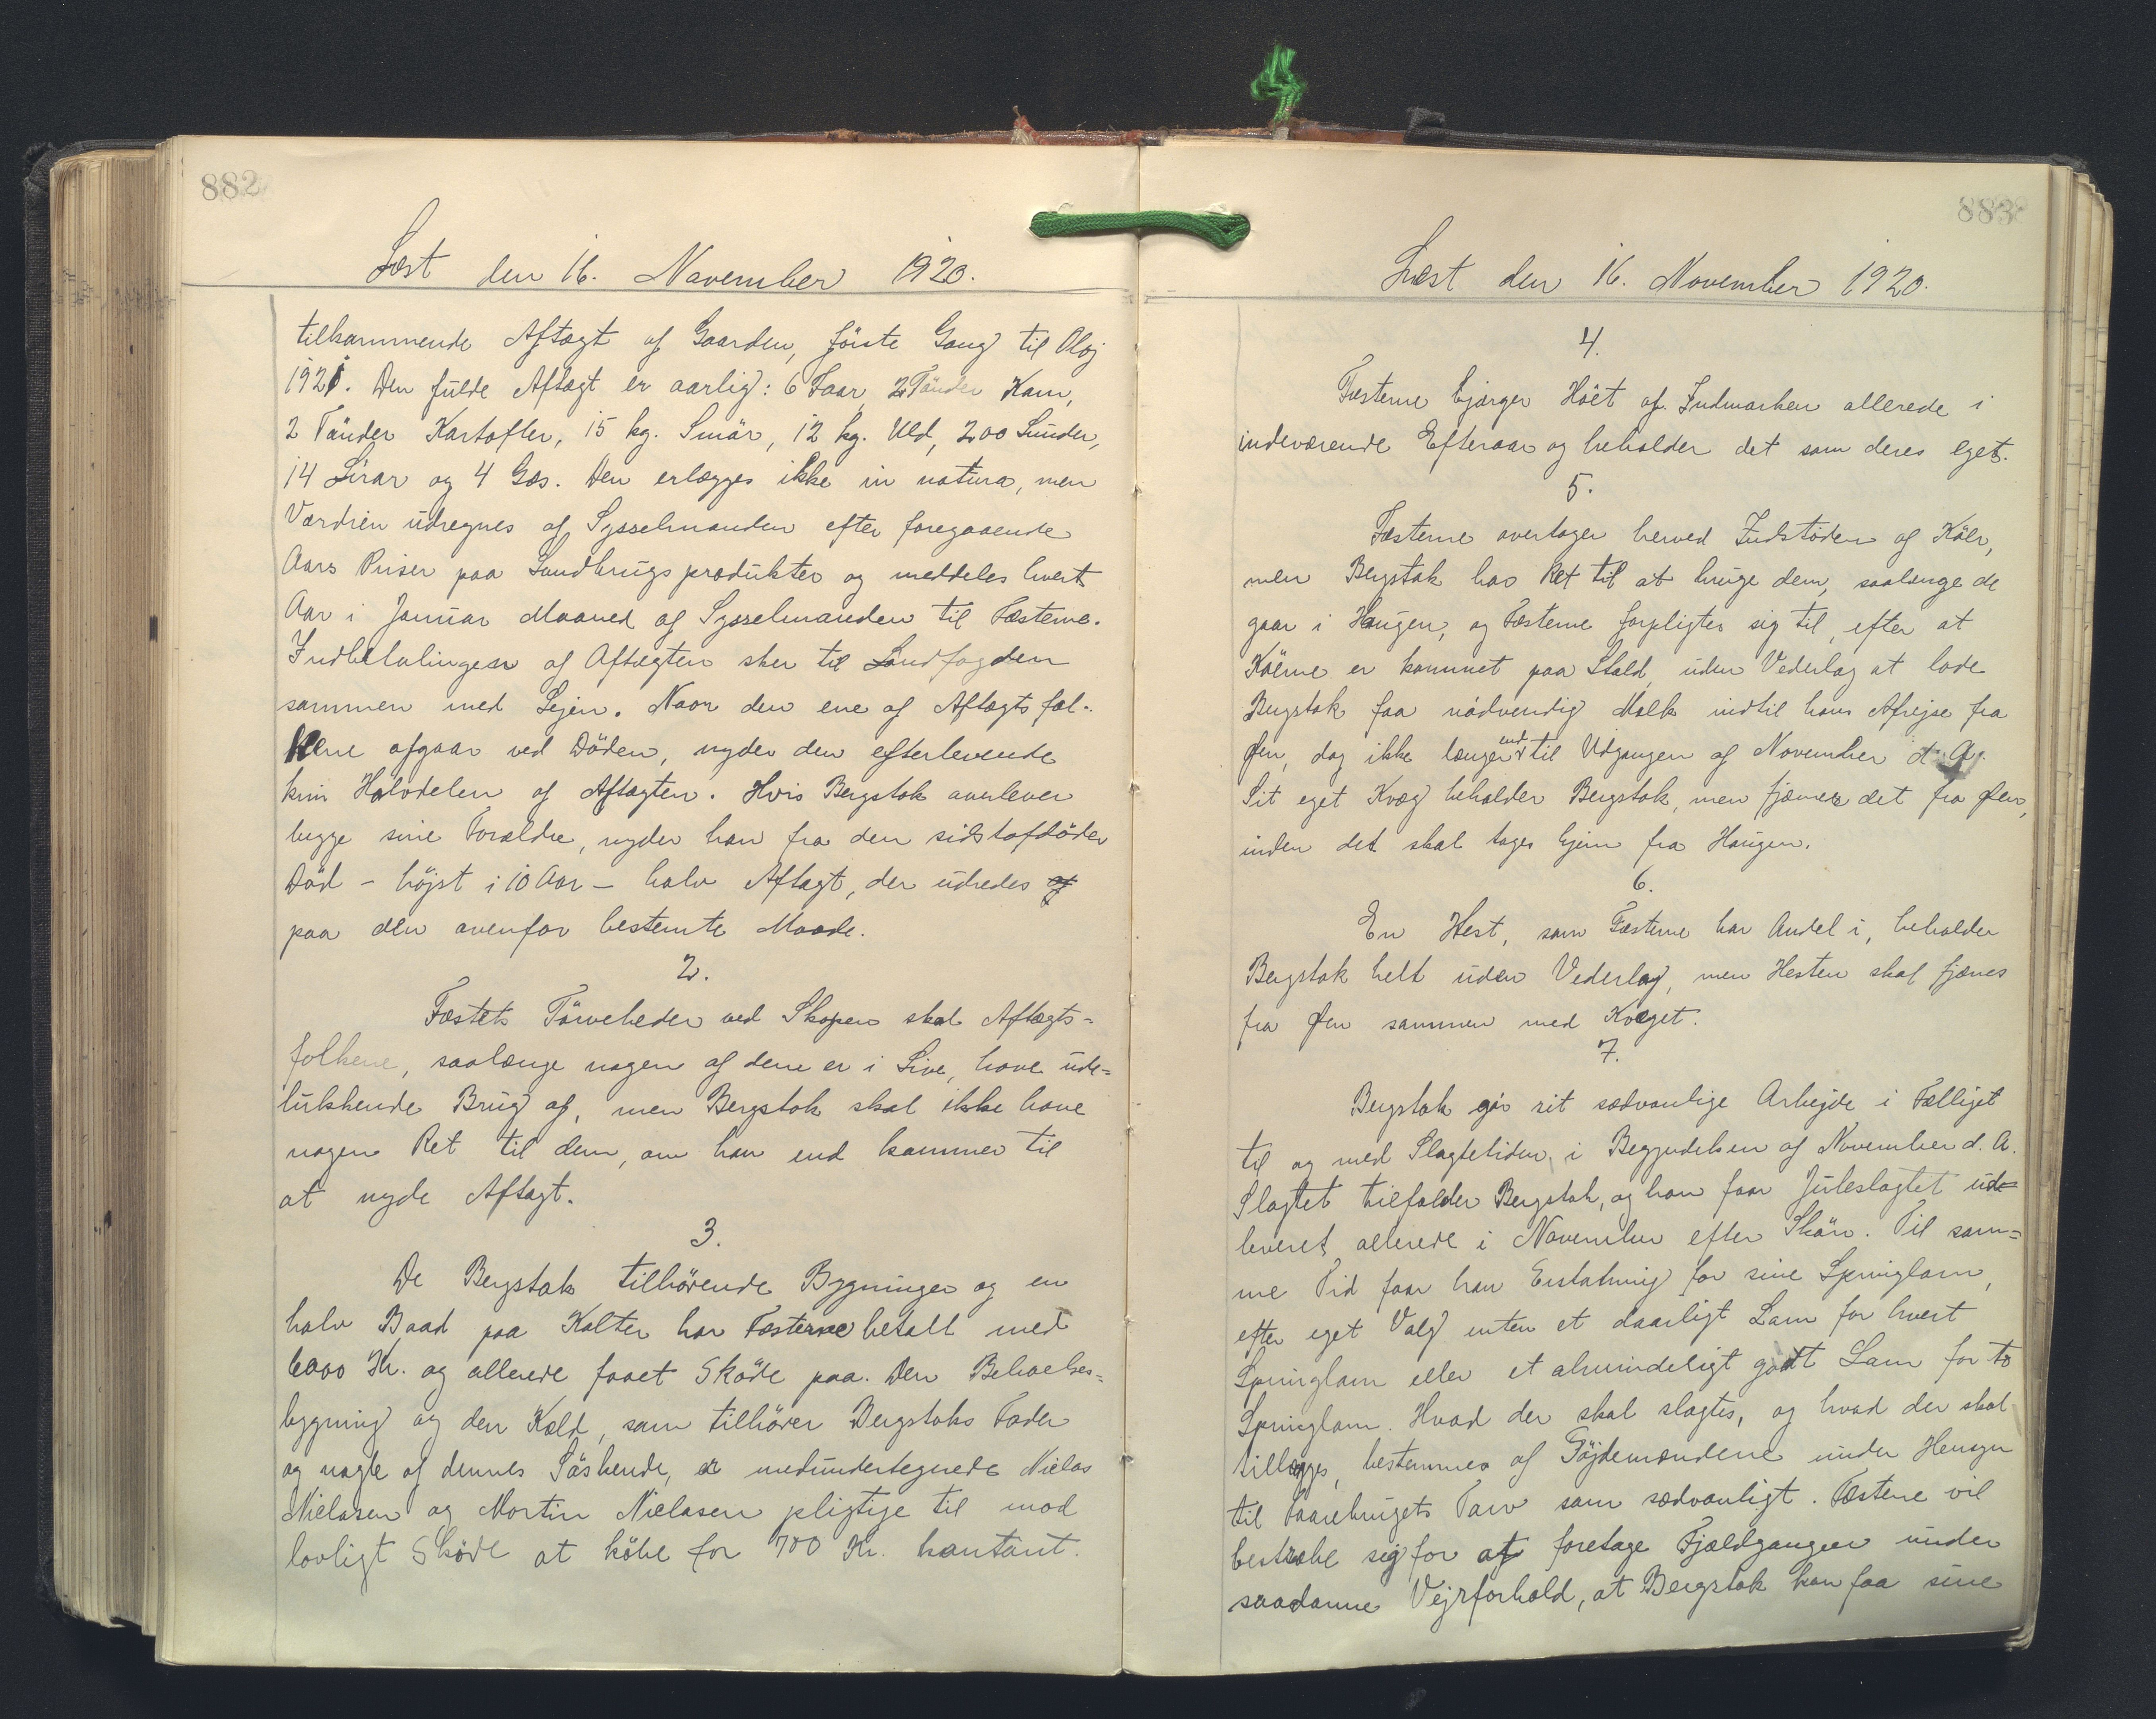 882
Læst den 16. November 1920.
tilkommende Aftægt af Gaarden, förste Gang til Oloj
1921. Den fulde Aftægt er aarlig: 6 Faar, 2 Tönder Korn,
2 Tönder Kartofler, 15 kg. Smör, 12 kg. Uld, 200 Lunder,
14 Lirar og 4 Gæs. Den erlægges ikke in natura, men
Værdien udregnes af Sysselmanden efter foregaaende
Aars Priser paa Landbrugsprodukter og meddeles hvert
Aar i Januar Maaned af Sysselmanden til Fæsterne.
Indbetalingen af Aftægten sker til Landfogden
sammen med Lejen. Naar den ene af Aftægtsfol-
kene afgaar ved Döden, nyder den efterlevende
kun Halvdelen af Aftægten. Hvis Bergstok overlever
begge sine Forældre, nyder han fra den sidstafdödes
Död - höjst i 10 Aar - halv Aftægt, der udredes
paa den ovenfor bestemte Maade.
2.
Fæstets Törveheder ved Skopen skal Aftægts=
folkene, saalænge nogen af dem er i Live, have ude=
lukkende Brug af, men Bergstok skal ikke have
nogen Ret til dem, om han end kommer til
at nyde Aftægt.
3.
De Bergstok tilhörende Bygninger og en
halv Baad paa Kolter har Fæsterne betalt med
6000 Kr. og allerede faaet Sköde paa. Den Beboelses=
bygning og den Kæld, som tilhörer Bergstoks Fader
og nogle af dennes Söskende, er medundertegnede Niclas
Niclasen og Mortin Niclasen pligtige til mod
lovligt Sköde at köbe for 700 Kr. kontant.
883
Læst den 16. November 1920.
4.
Fæsterne bjærger Höet af Indmarken allerede i
indeværende Efteraar og beholder det som deres eget.
5.
Fæsterne overtager herved Indstöden af Köer,
men Bergstok har Ret til at bruge dem, saalænge de
gaar i Haugen, og Fæsterne forpligter sig til, efter at
Köerne er kommet paa Stald, uden Vederlag at lade
Bergstok faa nödvendig Mælk indtil hans Afrejse fra
Øen, dog ikke længer end til Udgangen af November d. A.
Sit eget Kvæg beholder Bergstok, men fjærner det fra Øen,
inden det skal tages hjem fra Haugen.
6.
En Hest, som Fæsterne har Andel i, beholder
Bergstok helt uden Vederlag, men Hesten skal fjærnes
fra Øen sammen med Kvæget.
7.
Bergstok gör sit sædvanlige Arbejde i Fælliget
til og med Slagtetiden i Begyndelsen af November d. A.
Slagtet tilfalder Bergstok, og han faar Juleslagtet ud=
leveret allerede i November efter Skön. Til sam=
me Tid faar han Erstatning for sine Springlam,
efter eget Valg enten et daarligt Lam for hvert
Springlam eller et almindeligt godt Lam for to
Springlam. Hvad der skal slagtes, og hvad der skal
tillægges, bestemmes af Töjdemændene under Hensyn
til Faarebrugets Tarv som sædvanligt. Fæsterne vil
bestræbe sig for at foretage Fjældgangen under
saadanne Vejrforhold, at Bergstok kan faa sine